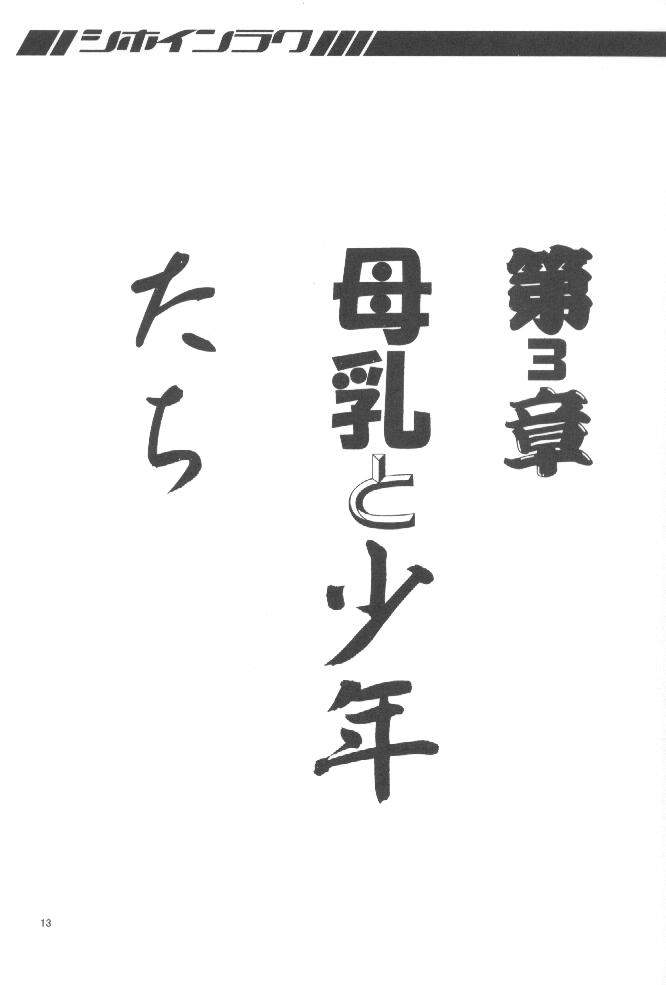 シホインラク
第3章
母乳と少年
たち
13